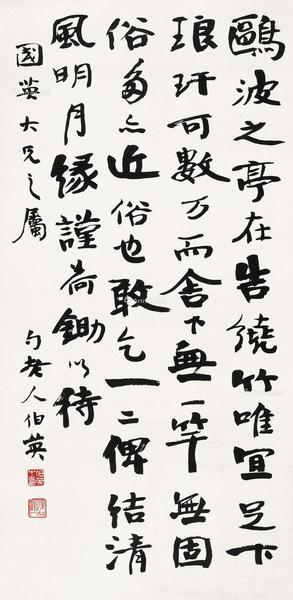 鷗波之亭在昔繞竹唯宜足下
琅玕可數万而舍下無一竿無固
俗多亦近俗也敢乞一二俾結清
風明月緣謹荷鋤以待
國英大兄之屬
勺老人伯英